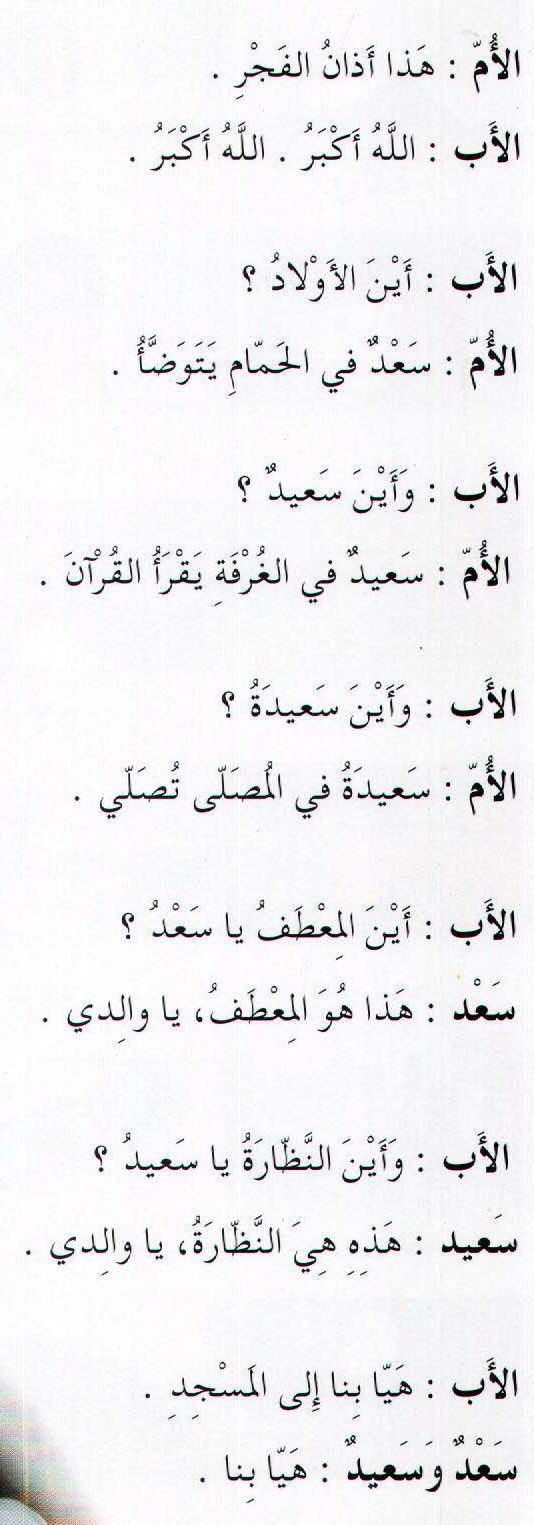 الأُمّ : هَذا أَذانُ الفَجْرِ .
الأَب : اللَّهُ أَكْبَرُ . اللَّهُ أَكْبَرُ .
الأَب : أَيْنَ الأَوْلادُ ؟
الأُمّ : سَعْدٌ في الحَمّامِ يَتَوَضَّأُ .
الأَب : وَأَيْنَ سَعيدٌ ؟
الأُمّ : سَعيدٌ في الغُرْفَةِ يَقْرَأُ القُرْآنَ .
الأَب : وَأَيْنَ سَعيدَةُ ؟
الأُمّ : سَعيدَةُ في المُصَلّى تُصَلّي .
الأَب : أَيْنَ المِعْطَفُ يا سَعْدُ ؟
سَعْد : هَذا هُوَ المِعْطَفُ، يا والِدي .
الأَب : وَأَيْنَ النَّظّارَةُ يا سَعيدُ ؟
سَعيد : هَذِهِ هِيَ النَّظّارَةُ، يا والِدي .
الأَب : هَيّا بِنا إِلى المَسْجِدِ .
سَعْدٌ وَسَعيدٌ : هَيّا بِنا .